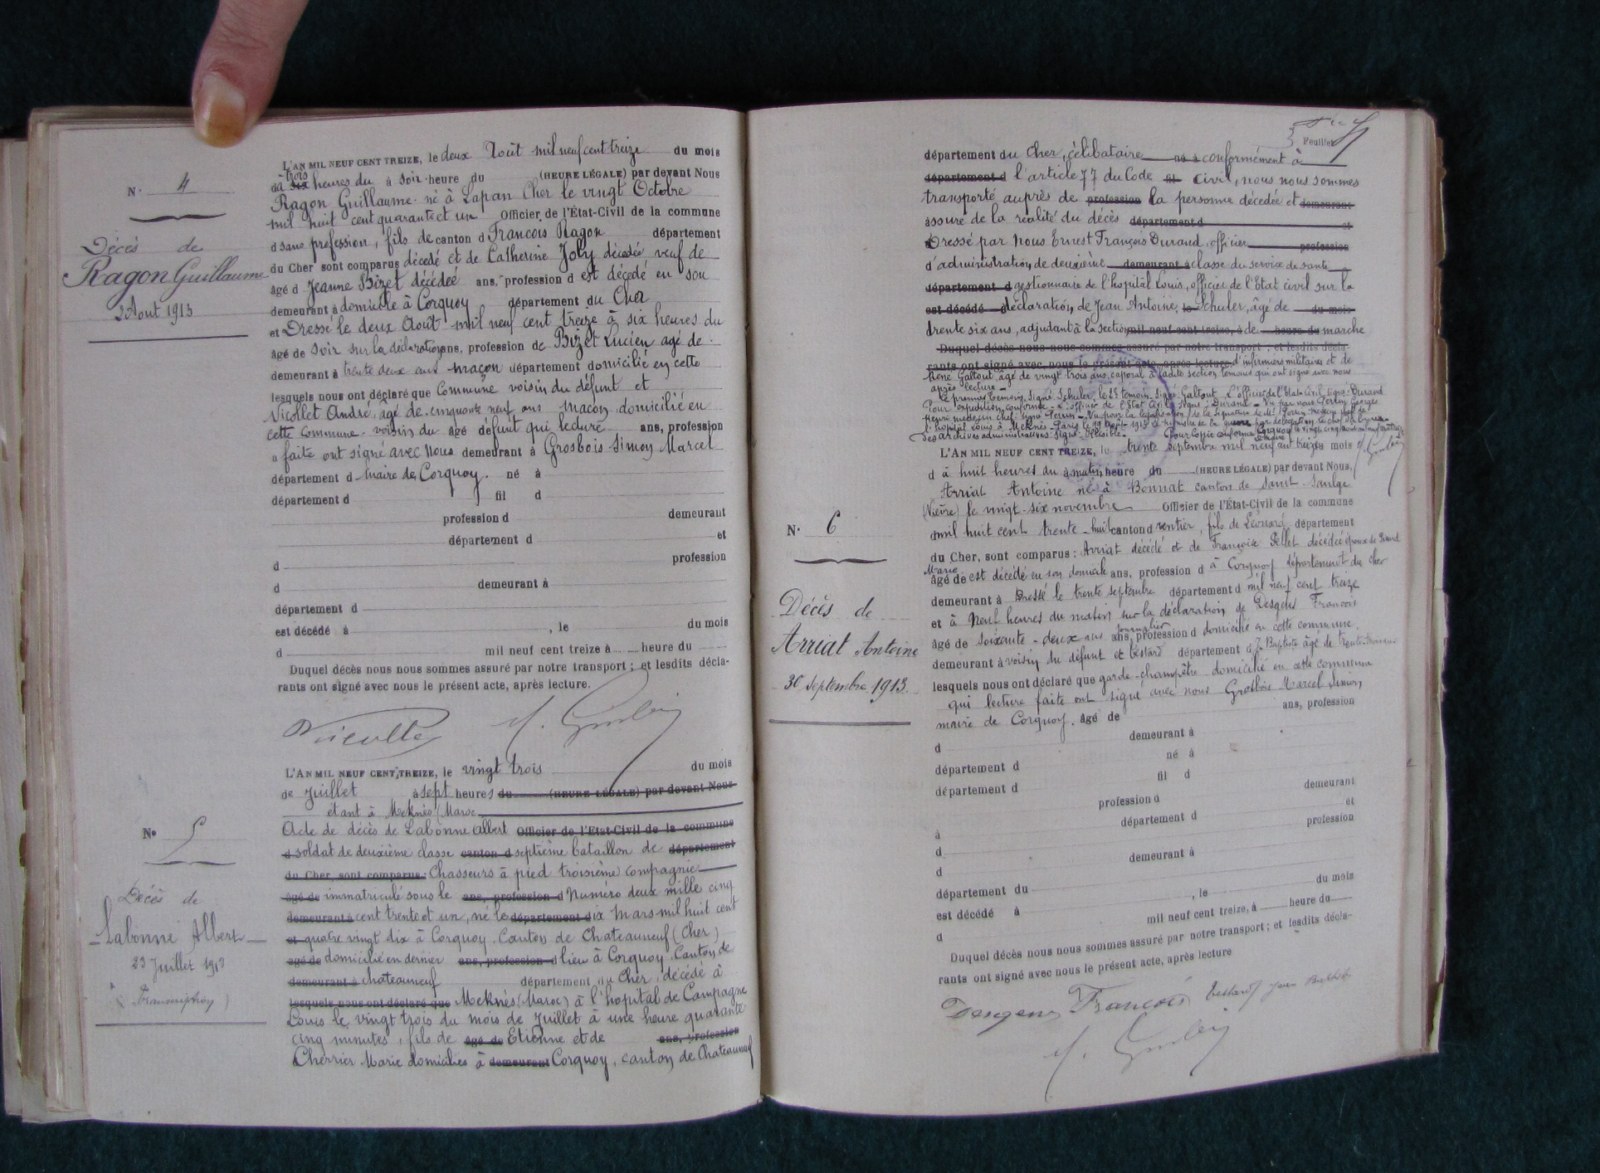 N° 4
Décès de
Ragon Guillaume
2 Aout 1913
L'AN MIL NEUF CENT TREIZE, le deux Août mil neuf cent treize du mois
à trois heures du soir heure du (HEURE LÉGALE) par devant Nous
Ragon Guillaume né à Lapan Cher le vingt Octobre
mil huit cent quarante et un Officier de l'État-Civil de la commune
d sans profession, fils de canton d François Ragon département
du Cher sont comparus décédé et de Catherine Joly décédée veuf de
âgé d Jeanne Bizet décédée ans, profession d est décédé en son
demeurant à domicile à Corquoy département du Cher
et Dressé le deux Août mil neuf cent treize à six heures du
âgé de soir sur la déclaration ans, profession de Bizet Lucien agé de
demeurant à trente deux ans maçon département domicilié en cette
lesquels nous ont déclaré que commune voisin du défunt et
Nicollet André, âgé de cinquante neuf ans maçon domicilié en
cette commune voisin du âgé défunt qui lecture ans, profession
faite ont signé avec nous demeurant à Grosbois Simon Marcel
département d maire de Corquoy né à
département d fil d
profession d demeurant
département d et
d profession
d demeurant à
département d
est décédé à , le du mois
d mil neuf cent treize à heure du
Duquel décès nous nous sommes assuré par notre transport ; et lesdits décla-
rants ont signé avec nous le présent acte, après lecture.
N° 5
Décès de
Labonne Albert
23 Juillet 1913
(Transcription)
L'AN MIL NEUF CENT TREIZE, le vingt trois du mois
de Juillet à sept heures du (HEURE LÉGALE) par devant Nous
étant à Meknès (Maroc)
Acte de décès de Labonne Albert Officier de l'Etat-Civil de la commune
d soldat de deuxième classe canton d septième bataillon de département
du Cher, sont comparus: Chasseurs à pied troisième compagnie
âgé de immatriculé sous le ans, profession d Numéro deux mille cinq
demeurant à cent trente et un, né le département dix mars mil huit cent
et quatre vingt dix à Corquoy Canton de Chateauneuf (Cher)
âgé de domicilié en dernier ans, profession d lieu à Corquoy Canton de
demeurant à chateauneuf département du Cher, décédé à
lesquels nous ont déclaré que Meknès (Maroc) à l'hopital de Campagne
Louis le vingt trois du mois de Juillet à une heure quarante
cinq minutes, fils de âgé de Etienne et de ans, profession
Cherrier Marie domiciliés à demeurant Corquoy, canton de Chateauneuf
Feuillet
département du Cher, célibataire né à conformément à
département d l'article 77 du Code fil civil, nous nous sommes
transporté auprès de profession la personne décédée et demeurant
assuré de la réalité du décès département d et
Dressé par Nous Ernest François Durand, officier profession
d'administration de deuxième demeurant à classe du service de santé
département d gestionnaire de l'hopital Louis, officier de l'Etat civil sur la
est décédé déclaration, de Jean Antoine, le Schuler, âgé de du mois
trente six ans, adjudant à la section mil neuf cent treize, à de heure du marche
Duquel décès nous nous sommes assuré par notre transport ; et lesdits décla-
rants ont signé avec nous le présent acte, après lecture d'infirmiers militaires et de
René Galtout, âgé de vingt trois ans, caporal à ladite section témoins qui ont signé avec nous
après lecture
N° 6
Décès de
Arriat Antoine
30 Septembre 1913
L'AN MIL NEUF CENT TREIZE, le trente septembre mil neuf cent treize mois
d à huit heures du matin heure du (HEURE LÉGALE) par devant Nous,
Arriat Antoine né à Bonnat canton de Saint-Saulge
(Nièvre) le vingt-six novembre Officier de l'État-Civil de la commune
d mil huit cent trente-huit canton d rentier, fils de Léonard département
du Cher, sont comparus : Arriat décédé et de Françoise Pellet décédée
Marie
âgé de est décédé en son domicile ans, profession d à Corquoy département du Cher
demeurant à Dressé le trente septembre département d mil neuf cent treize
et à Neuf heures du matin sur la déclaration de Desgens François
âgé de soixante-deux ans journalier ans, profession d domicilié en cette commune
demeurant à voisin du défunt et département d âgé de
lesquels nous ont déclaré que garde-champêtre domicilié en cette commune
qui lecture faite ont signé avec nous Grosbois Marcel Simon,
maire de Corquoy. âgé de ans, profession
d demeurant à
département d né à
département d fil d
profession d demeurant
à département d et
d profession
d demeurant à
département du
est décédé à , le du mois
d mil neuf cent treize, à heure du
Duquel décès nous nous sommes assuré par notre transport ; et lesdits décla-
rants ont signé avec nous le présent acte, après lecture
Desgens François